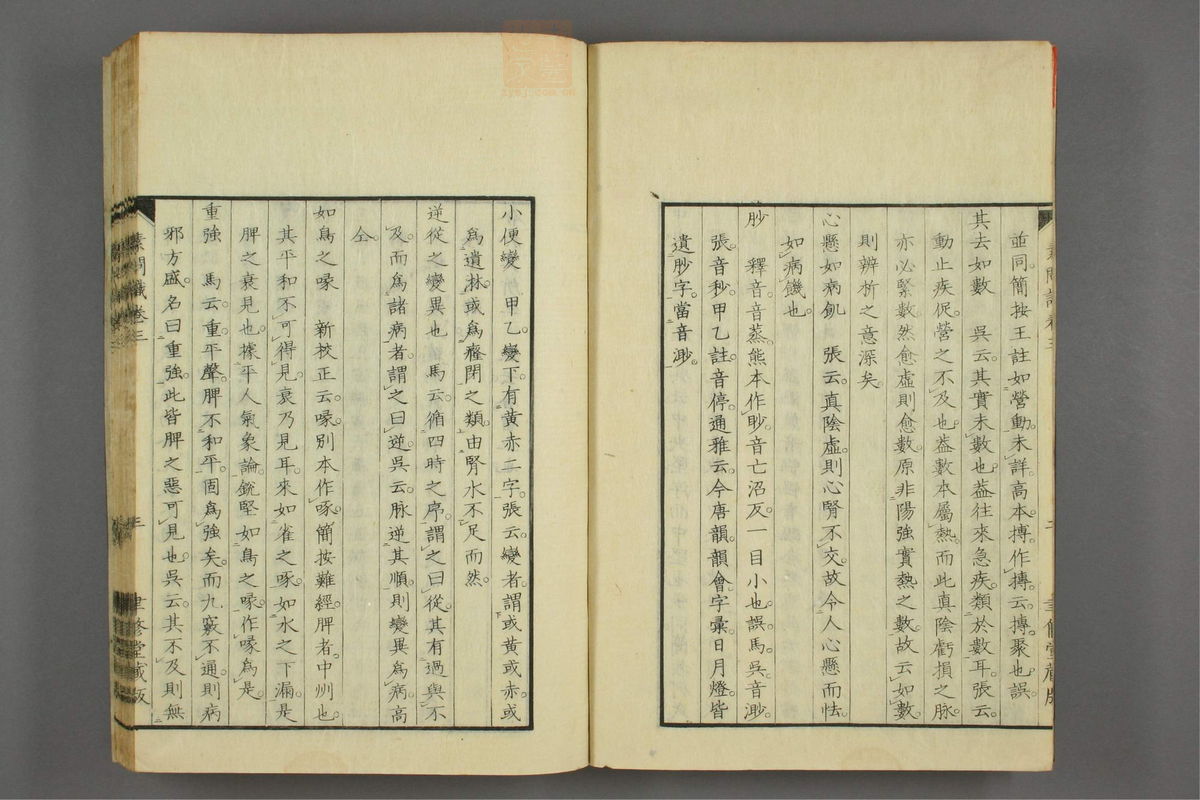 並同簡按王註如營動未詳高本摶作搏云搏聚也誤
其去如數　吳云其實未數也葢往來急疾類於數耳張云
動止疾促營之不及也葢數本屬熱而此真陰虧損之脉
亦必緊數然愈虛則愈數原非陽強實熱之數故云如數
則辨析之意深矣
心懸如病飢　張云真陰虛則心腎不交故令人心懸而怯
如病饑也
䏚　釋音音蒸熊本作眇音亡沼反一目小也誤馬吳音渺
張音秒甲乙註音停通雅云今唐韻韻會字彙日月燈皆
遺䏚字當音渺
小便變　甲乙變下有黃赤二字張云變者謂或黃或赤或
爲遺淋或爲癃閉之類由腎水不足而然
逆從之變異也　馬云循四時之序謂之曰從其有過與不
及而爲諸病者謂之曰逆吳云脉逆其順則變異爲病高
仝
如鳥之喙　新校正云喙別本作啄簡按難經脾者中州也
其平和不可得見衰乃見耳來如雀之啄如水之下漏是
脾之衰見也據平人氣象論銳堅如鳥之喙作喙爲是
重強　馬云重平聲脾不和平固爲強矣而九竅不通則病
邪方盛名曰重強此皆脾之惡可見也吳云其不及則無
素問識卷三
三
聿修堂藏版